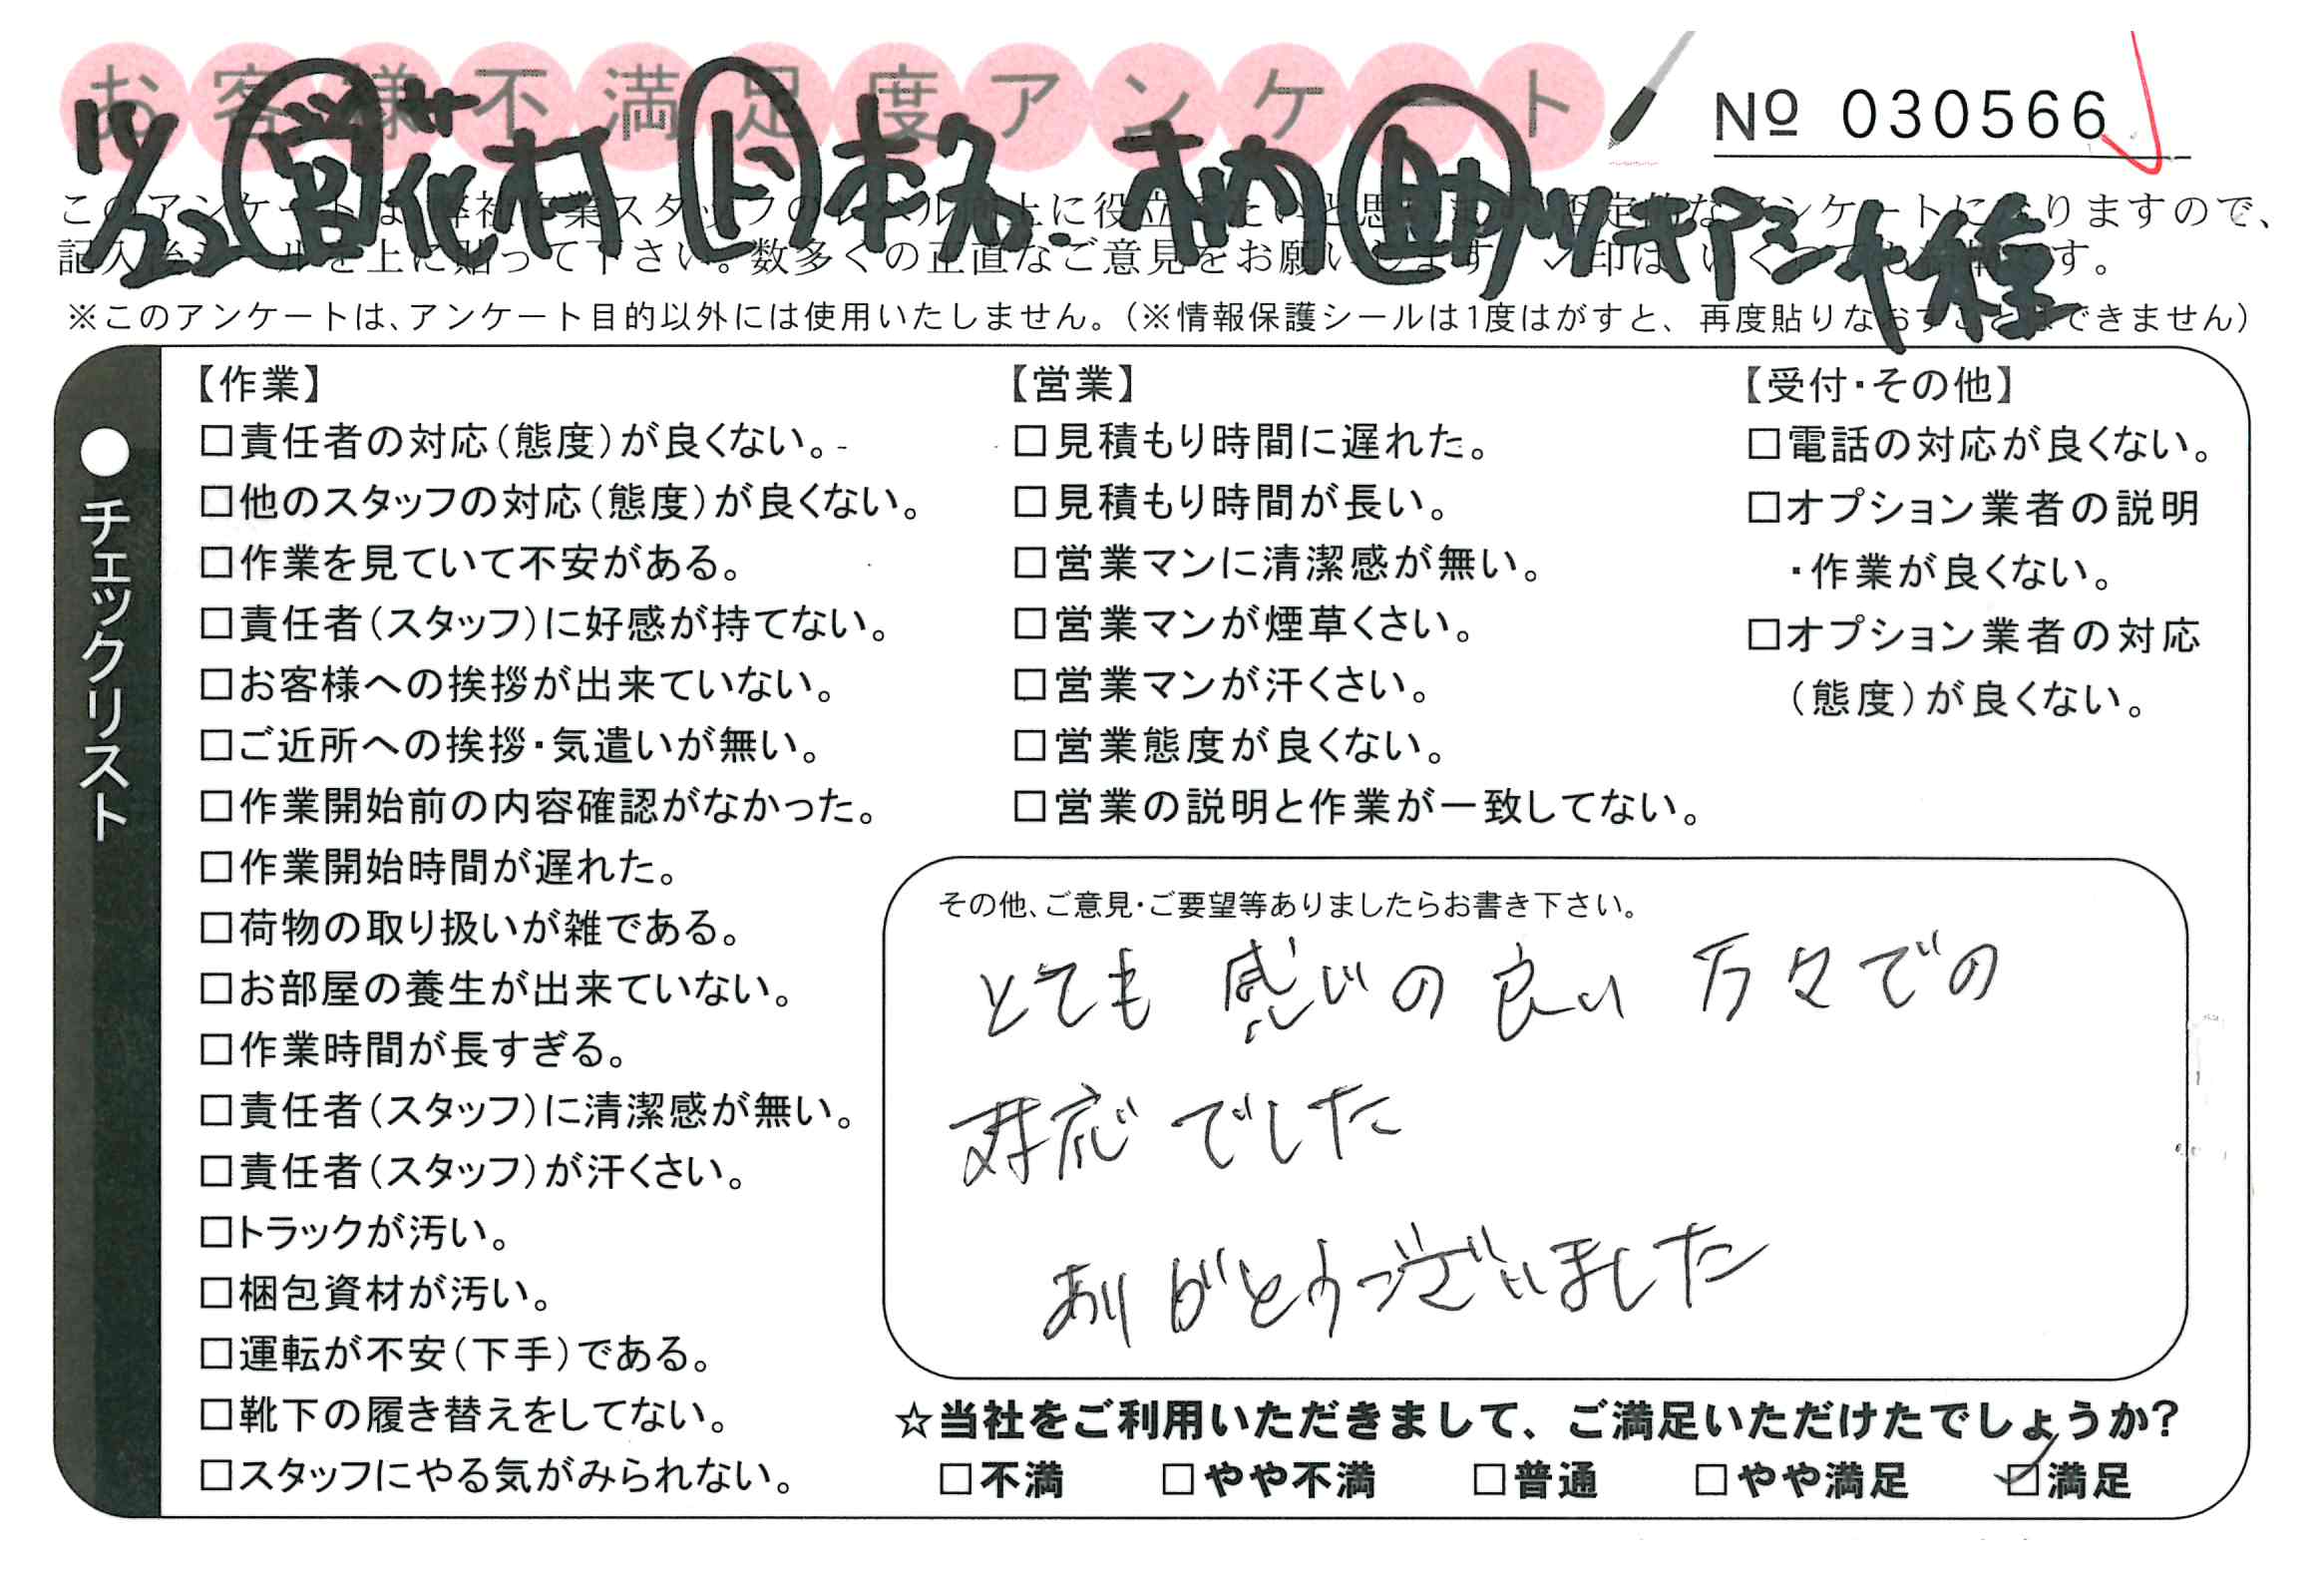 お客様不満足度アンケート
№ 030566
※このアンケートは、アンケート目的以外には使用いたしません。（※情報保護シールは1度はがすと、再度貼りなおすことはできません）
●チェックリスト
【作業】
□責任者の対応（態度）が良くない。
□他のスタッフの対応（態度）が良くない。
□作業を見ていて不安がある。
□責任者（スタッフ）に好感が持てない。
□お客様への挨拶が出来ていない。
□ご近所への挨拶・気遣いが無い。
□作業開始前の内容確認がなかった。
□作業開始時間が遅れた。
□荷物の取り扱いが雑である。
□お部屋の養生が出来ていない。
□作業時間が長すぎる。
□責任者（スタッフ）に清潔感が無い。
□責任者（スタッフ）が汗くさい。
□トラックが汚い。
□梱包資材が汚い。
□運転が不安（下手）である。
□靴下の履き替えをしてない。
□スタッフにやる気がみられない。
【営業】
□見積もり時間に遅れた。
□見積もり時間が長い。
□営業マンに清潔感が無い。
□営業マンが煙草くさい。
□営業マンが汗くさい。
□営業態度が良くない。
□営業の説明と作業が一致してない。
【受付・その他】
□電話の対応が良くない。
□オプション業者の説明
・作業が良くない。
□オプション業者の対応
（態度）が良くない。
その他、ご意見・ご要望等ありましたらお書き下さい。
とても 感じの 良い 方々での
対応でした
ありがとうございました
☆当社をご利用いただきまして、ご満足いただけたでしょうか？
□不満 □やや不満 □普通 □やや満足 ☑満足